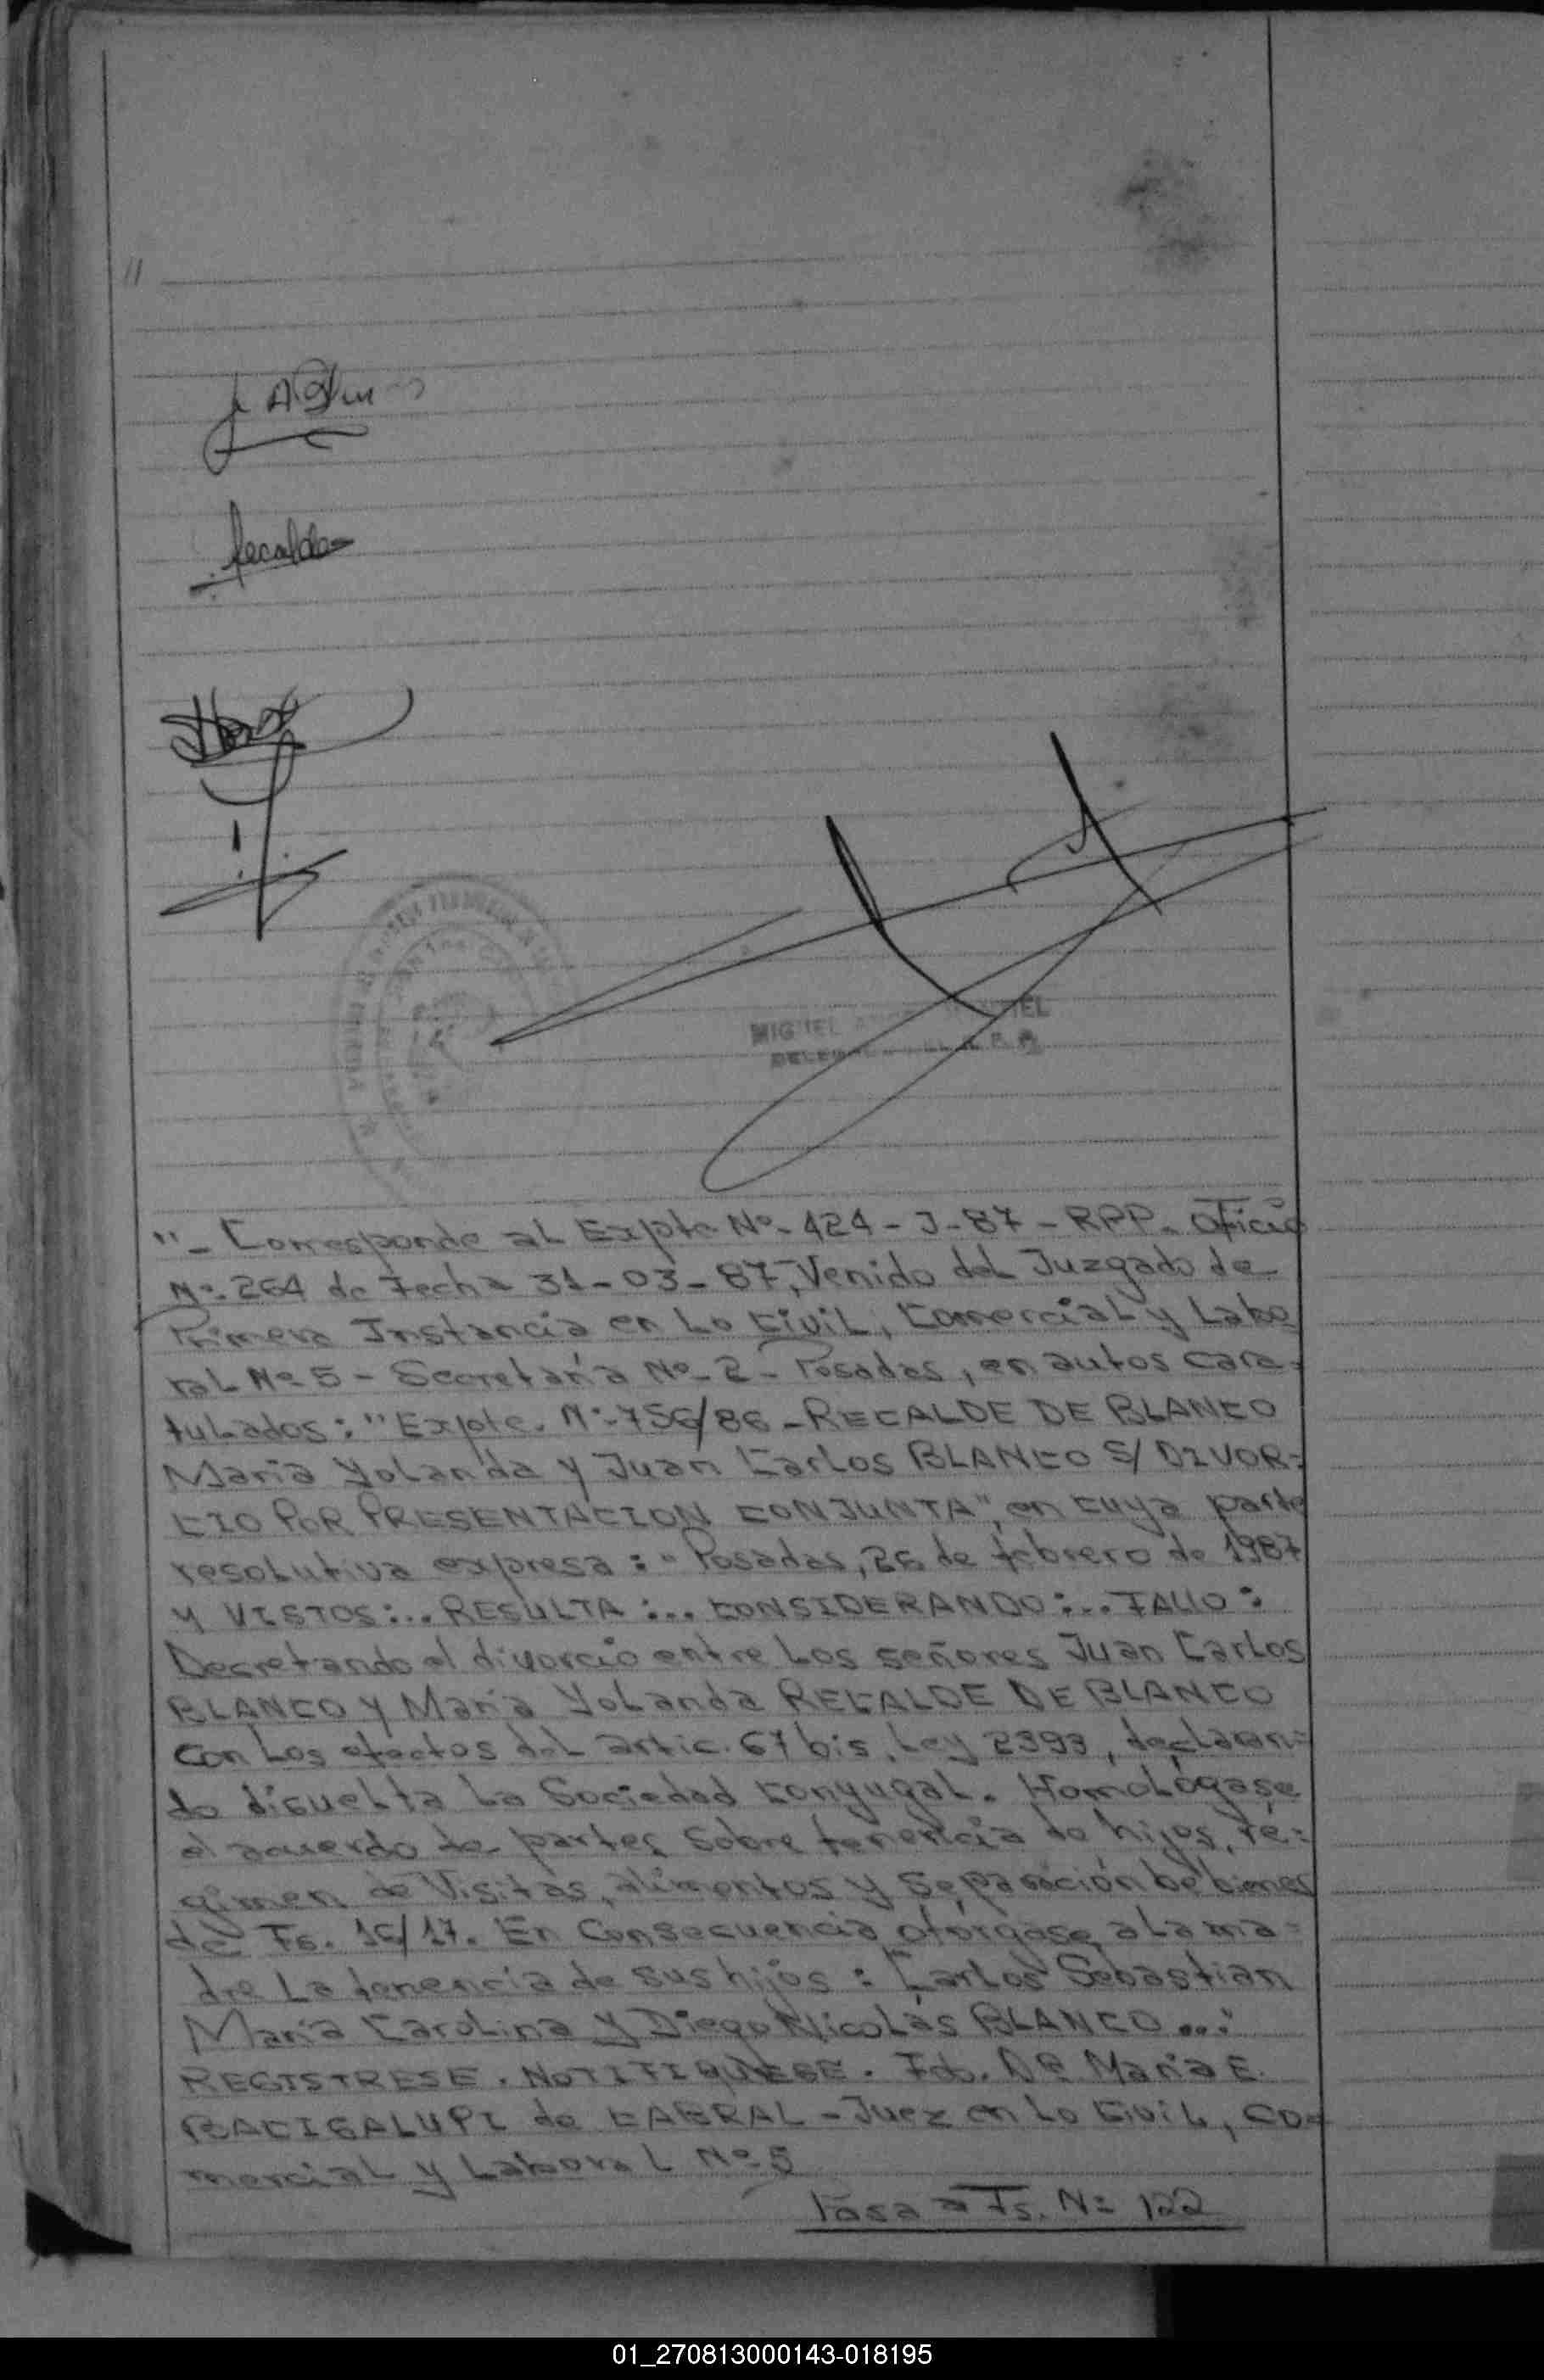 "
Recalde
MIGUEL
"- Corresponde al Expte Nº- 424 - J - 87 - RPP. Oficio
Nº. 264 de Fecha 31-03-87, Venido del Juzgado de
Primera Instancia en lo Civil, Comercial y Labo
ral Nº 5 - Secretaría Nº- 2 - Posadas, en autos cara=
tulados: "Expte. Nº-756/86 - RECALDE DE BLANCO
María Yolanda y Juan Carlos BLANCO S/ DIVOR=
CIO POR PRESENTACION CONJUNTA", en cuya parte
resolutiva expresa: "Posadas, 26 de febrero de 1987
Y VISTOS:... RESULTA:... CONSIDERANDO:... FALLO:
Decretando el divorcio entre los señores Juan Carlos
BLANCO y María Yolanda RECALDE DE BLANCO
con los efectos del artic. 67 bis, Ley 2393, declaran=
do disuelta la Sociedad conyugal. Homológase
el acuerdo de partes sobre tenencia de hijos, ré=
gimen de Visitas, alimentos y Separación de bienes
de Fs. 16/17. En Consecuencia otórgase a la ma=
dre la tenencia de sus hijos: Carlos Sebastian
María Carolina y Diego Nicolás BLANCO..."
REGISTRESE. NOTIFIQUESE. Fdo. Dª María E.
BACIGALUPI de CABRAL - Juez en lo Civil, Co=
mercial y Laboral Nº 5
Pasa a Fs. Nº 122
01_270813000143-018195